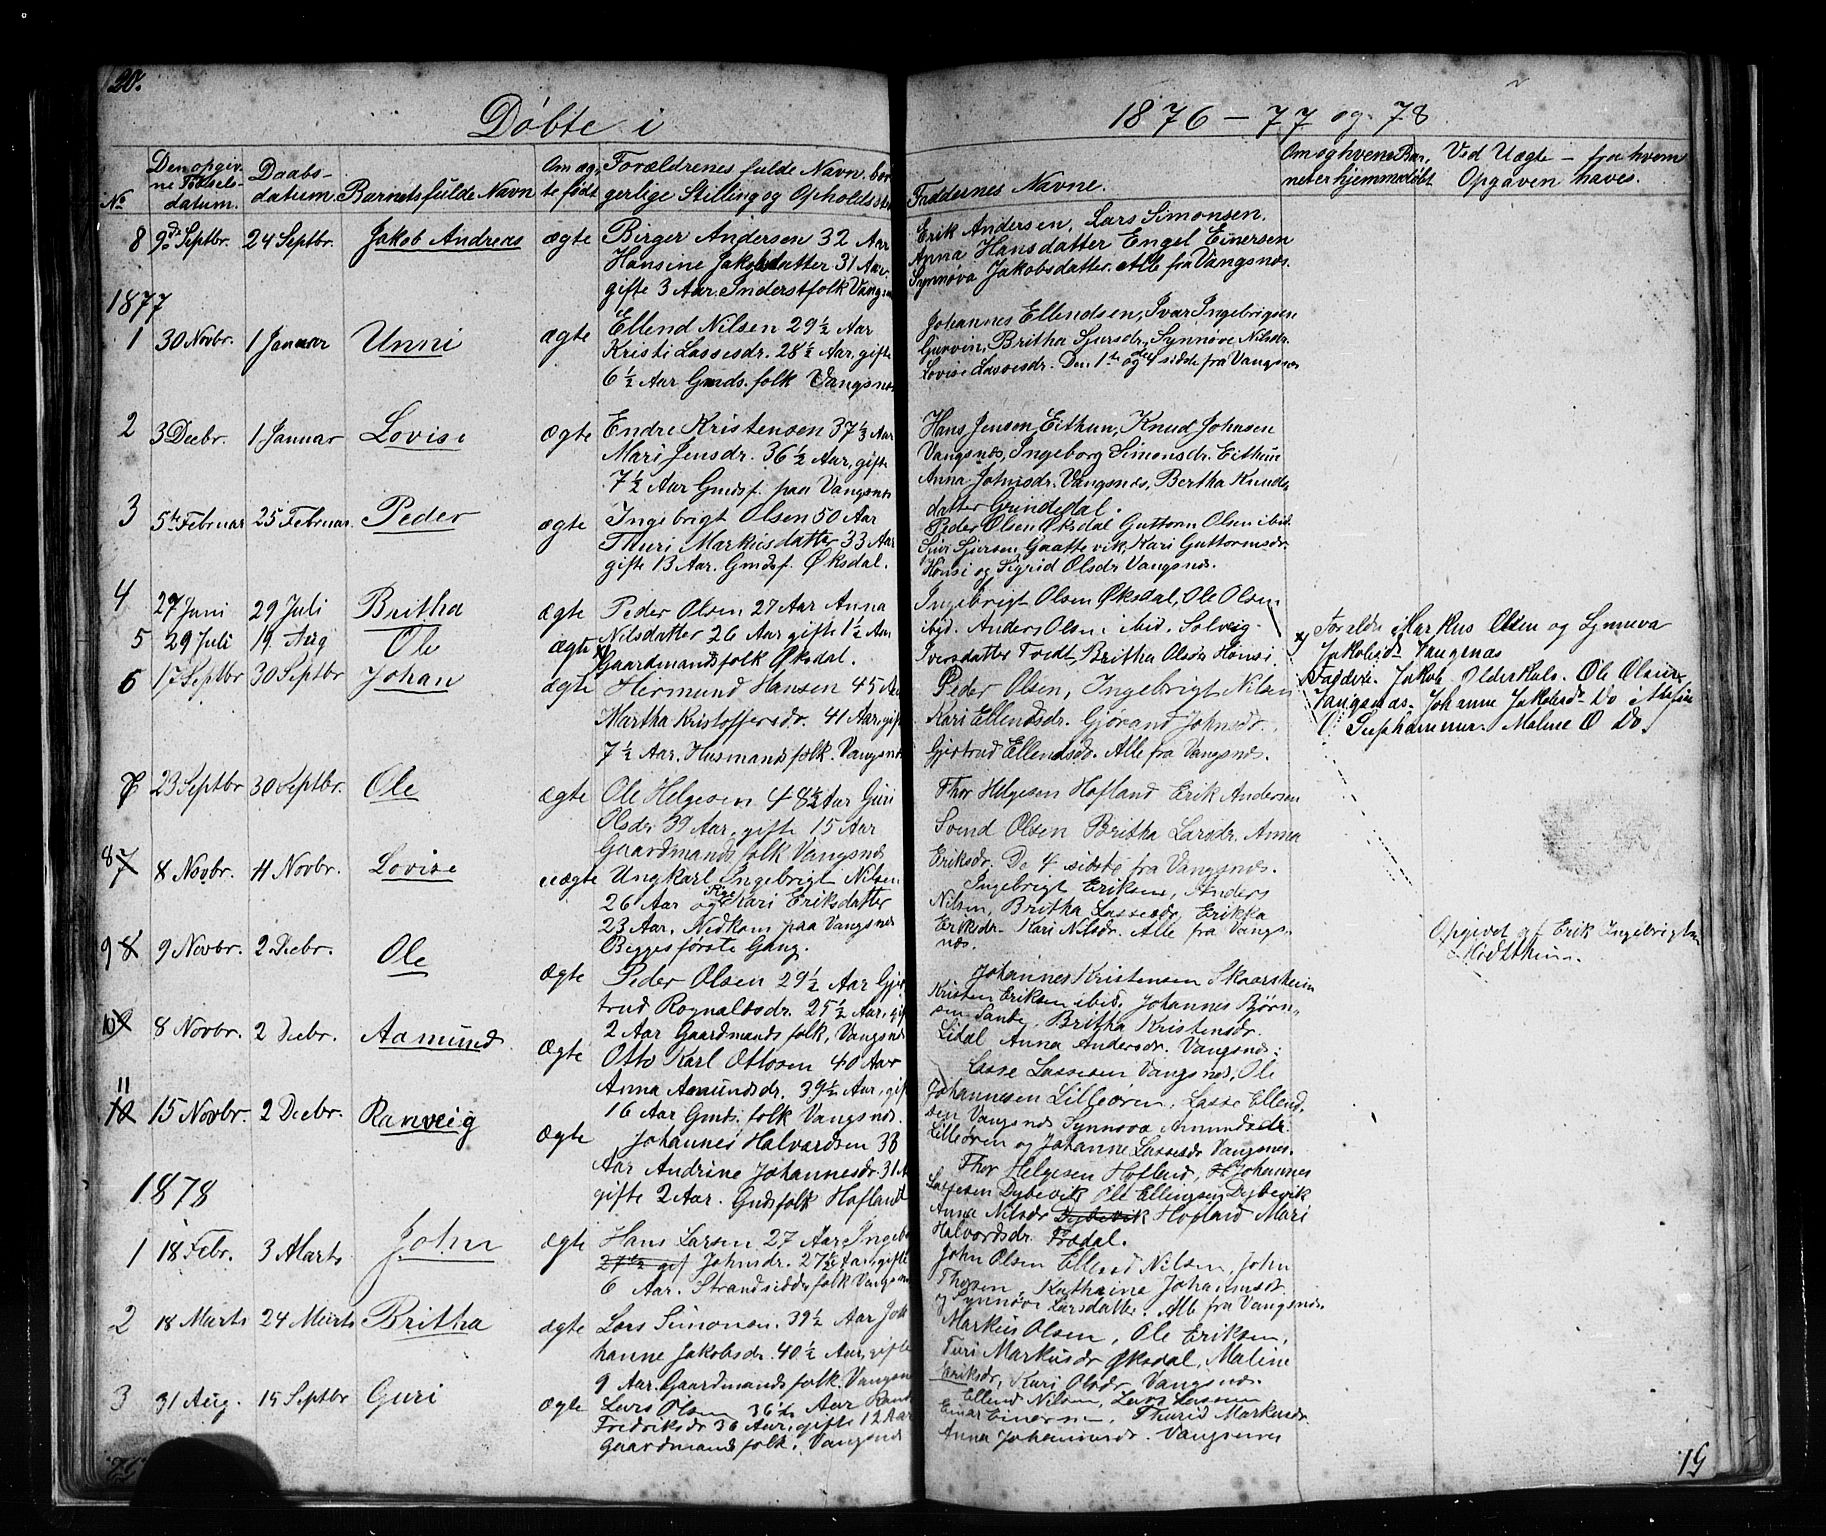 20.
Døbte i
1876 – 77 og 78
No
Den opgiv-
ne Fødsels-
datum.
Daabs-
datum.
Barnets fulde Navn
Om æg-
te født
Forældrenes fulde Navn, bor-
gerlige Stilling og Opholdsst
Faddernes Navne.
Om og hvem Bar-
net er hjemmedøbt
Ved Uægte – fra hvem
Opgaven haves.
8 9de Septbr. 24 Septbr. Jakob Andreas ægte
Birger Andersen 32 Aar
Hansine Jakobsdatter 31 Aar
gifte 3 Aar. Inderstfolk Vangsn
Erik Andersen, Lars Simonsen.
Anna Hansdatter Engel Einersen
Synnøva Jakobsdatter. Alle fra Vangsnæs.
1877
1 30 Novbr. 1 Januar Unni ægte
Ellend Nilsen 29½ Aar
Kristi Lassesdr. 28½ Aar, gifte
6½ Aar Gmds. folk Vangsnæs
Johannes Ellendsen, Ivar Ingebrigsen
Gurvin, Britha Sjursdr., Synnøve Nilsdr.
Lovise Lassesdr. Den 1ste og de 4 sidste fra Vangsnæs
2 3 Decbr. 1 Januar Lovise ægte
Endre Kristensen 37⅓ Aar
Mari Jensdr. 36½ Aar, gifte
7½ Aar Gmdsf. paa Vangsnæs
Hans Jensen Eithun, Knud Johasen
Vangsnæs, Ingeborg Simonsdr. Eithun
Anna Johnsdr. Vangsnæs, Bertha Knuds
datter Grindedal.
3 5te Februar 25 Februar. Peder ægte
Ingebrigt Olsen 50 Aar
Thuri Markusdatter 33 Aar
gifte 13 Aar. Gmdsf. Øksdal.
Peder Olsen Øksdal Guttorm Olsen ibid.
Sjur Sjursen Gaattevik, Kari Guttormsdr.
Hønsi og Sigrid Olsdr Vangsnæs.
4 27 Juni 29 Juli Britha ægte
Peder Olsen 27 Aar Anna
Nilsdatter 26 Aar gifte 1½ Aar
Gaardmandsfolk Øksdal.
Ingebrigt Olsen Øksdal, Ole Olsen
ibid. Anders Olsen ibid. Solveig
Iversdatter Todt, Britha Olsdr Hønsi.
5 29 Juli 19 Aug Ole ægte
Foreldre Markus Olsen og Synneva
Jakobsdr Vangsnæs
Faddere. Jakob Olderskals. Ole Olsen
Vangsnæs. Johanne Jakobsdr Do
Malene O Do.
6 17 Septbr 30 Septbr Johan ægte
Hermund Hansen 45 Aar
Martha Kristoffersdr. 41 Aar, gifte
7½ Aar. Husmandsfolk. Vangsnæs
Peder Olsen, Ingebrigt Nilsen
Kari Ellendsdr. Gjørand Johnsdr.
Gjertrud Ellendsdr. Alle fra Vangsnæs.
7 23 Septbr 30 Septbr. Ole ægte
Ole Helgesen 48½ Aar Guri
Olsdr 39 Aar, gifte 15 Aar
Gaardmandsfolk Vangsnæs
Thor Helgesen Hofland Erik Andersen
Svend Olsen Britha Larsdr. Anna
Eriksdr. De 4 sidste fra Vangsnæs.
8 7 8 Novbr. 11 Novbr. Lovise uægte
Ungkarl Ingebrigt Nilsen
26 Aar og Pige Kari Eriksdatter
23 Aar. Nedkom paa Vangsnæs
Begges første Gang.
Ingebrigt Eriksen, Anders
Nilsen, Britha Lassesdr, Erikka
Eriksdr. Kari Nilsdr. Alle fra Vangs-
næs.
Opgivet af Erik Ingebrigtsen
9 8 9 Novbr. 2 Decbr. Ole ægte
Peder Olsen 29½ Aar Gjer
trud Rognaldsdr. 25½ Aar, gif
2 Aar Gaardmandsfolk, Vangsnæs
Johannes Kristensen Skaarsheim
Kristen Eriksen ibid. Johannes Bjørn-
sen Sande, Britha Kristensdr.
Lidal Anna Andersdr. Vangsnæs.
10 9 8 Novbr. 2 Decbr. Aamund ægte
Otto Karl Ottosen 40 Aar
Anna Amundsdr. 39½ Aar, gif
16 Aar Gmds. folk Vangsnæs.
Lasse Lassesen Vangsnæs, Ole
Johannesen Lilleøren, Lasse Ellend,
sen Vangsnæs Synnøva Amundsdr.
Lilleøren og Johanne Lassesdr Vangsnæs.
11 10 15 Novbr. 2 Decbr. Ranveig ægte
Johannes Halvardsen 33
Aar Andrine Johannesdr. 31 A
gifte 2 Aar. Gmdsfolk Hofland
Thor Helgesen Hofland, Johannes
Lassesen Dybevik Ole Ellingsen Dybevik
Anna Nilsdr Dybevik Hofland Mari
Halvordsdr. Frædal.
1878
1 18 Febr. 3 Marts John ægte
Hans Larsen 27 Aar Ingeb
27½ gif Johnsdr. 27½ Aar gifte
6 Aar. Strandsidderfolk Vangsnæs
John Olsen Ellend Nilsen, John
Thorsen, Kathrine Johannesdr
og Synnøve Larsdatter. Alle fra Vangsnæs.
2 18 Marts 24 Marts Britha ægte
Lars Simonsen. 39½ Aar Joh
hanne Jakobsdr. 40½ Aar, gifte
9 Aar. Gaardmandsfolk. Vangsnæs
Markus Olsen, Ole Eriksen,
Turi Markusdr Øksdal, Maline
Eriksdr, Kari Olsdr Vangsnæs.
3 31 Aug. 15 Septbr Guri ægte
Lars Olsen 36½ Aar Rand
Fredriksdr 36 Aar, gifte 12 Aar
Gaardmandsfolk. Vangsnæs
Ellend Nilsen, Lars Lassesen
Einar Einersen, Thurid Markusdr.
Anna Johannesdr. Vangsnæs
19